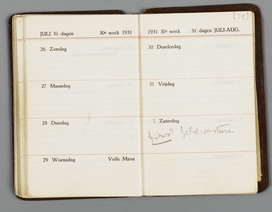 [34]
JULI 31 dagen 30e week 1931
26 Zondag
27 Maandag
28 Dinsdag
29 Woensdag Volle Maan
1931 30e week 31 dagen JULI-AUG.
30 Donderdag
31 Vrijdag
1 Zaterdag